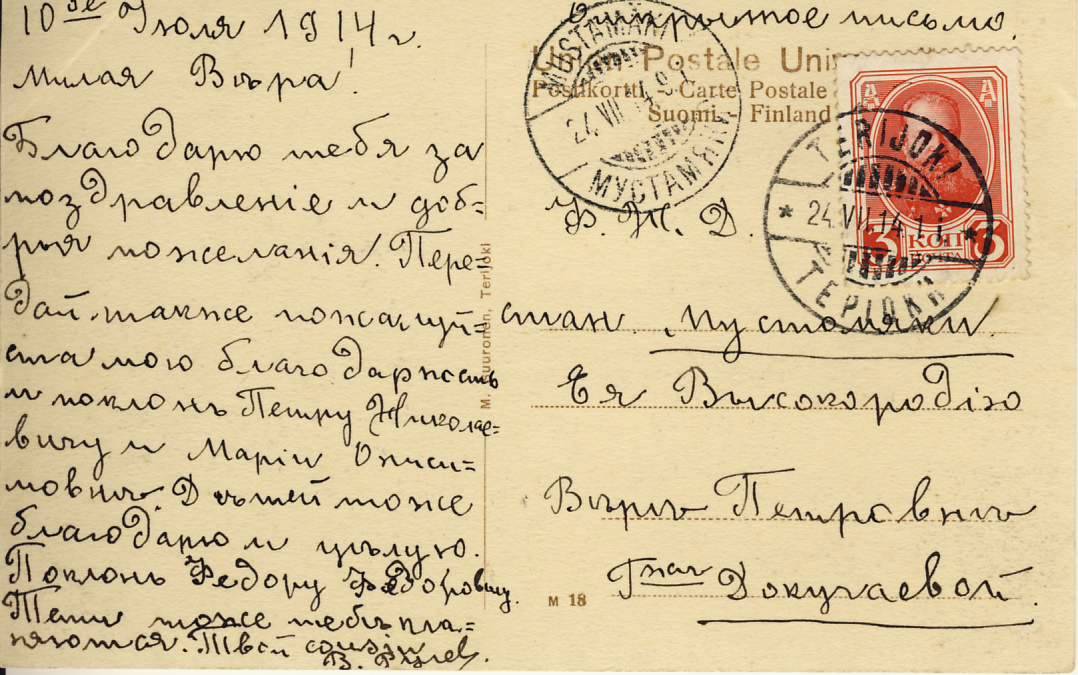 10го Іюля 1914 г.
Милая Вѣра!
Благодарю тебя за
поздравленіе и доб-
рыя пожеланія. Пере-
дай также пожалуй-
ста мою благодарность
и поклонъ Петру Николае-
вичу и МаріиОниси-
мовнѣ. Дѣтей тоже
благодарю и цѣлую.
Поклонъ Федору Федоровичу.
тоже тебѣ кла-
няются. Твой cousin
В.
Открытое письмо.
Union Postale Universelle
Postikortti - Carte Postale
Suomi - Finland
MUSTAMÄKI
27. VII. 14
МУСТАМЯКИ
TERIJOKI
24. VII. 14
ТЕРІОКИ
3 КОП 3
ПОЧТА
Ф. Ж. Д.
стан. Мустомяки
Ея Высокородію
Вѣрѣ Петровнѣ
Г-жѣ Докучаевой.
M. Terijoki
M 18